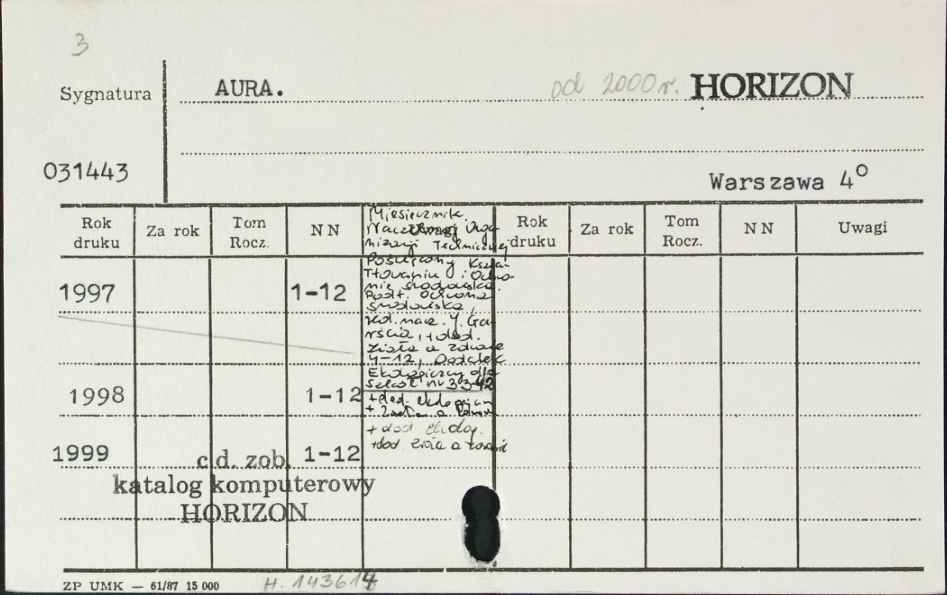 3
Sygnatura AURA. od 2000 r. HORIZON
031443 Warszawa 4°
Rok druku Za rok Tom Rocz. NN Rok druku Za rok Tom Rocz. NN Uwagi
Miesięcznik
Naczelnej Orga
nizacji Technicznej
Poświęcony Kszta
łtowaniu i Ochro
nie środowiska.
Podt. Ochrona
środowiska,
red. nacz.
+ dod.
Zioła a zdrowie
4-12, Dodatek
Ekologiczny dla
szkół nr 33-42
1997 1-12
1998 1-12
+ dod.
+ Zioła a
1999 1-12
+ dod ekolog.
+ dod. zioła a zdrowie
c.d. zob.
katalog komputerowy
HORIZON
ZP UMK — 61/87 15 000 H. 143614